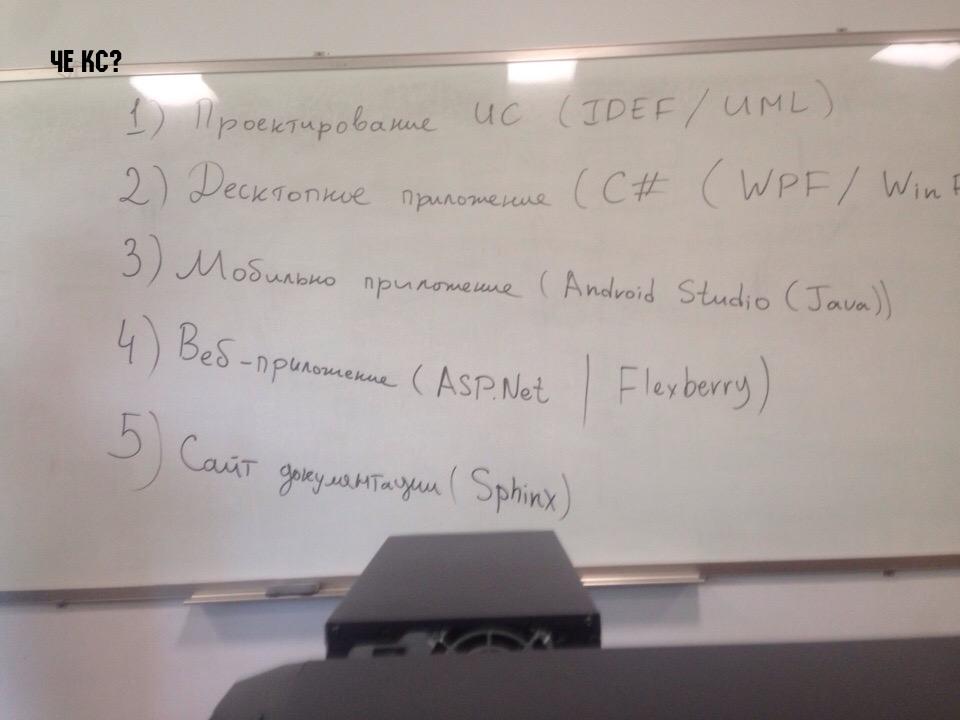 ЧЕ КС?
1) Проектирование ИС (IDEF / UML)
2) Десктопное приложение (C# (WPF / Win F
3) Мобильно приложение (Android Studio (Java))
4) Веб-приложение (ASP.Net | Flexberry)
5) Сайт документации (Sphinx)